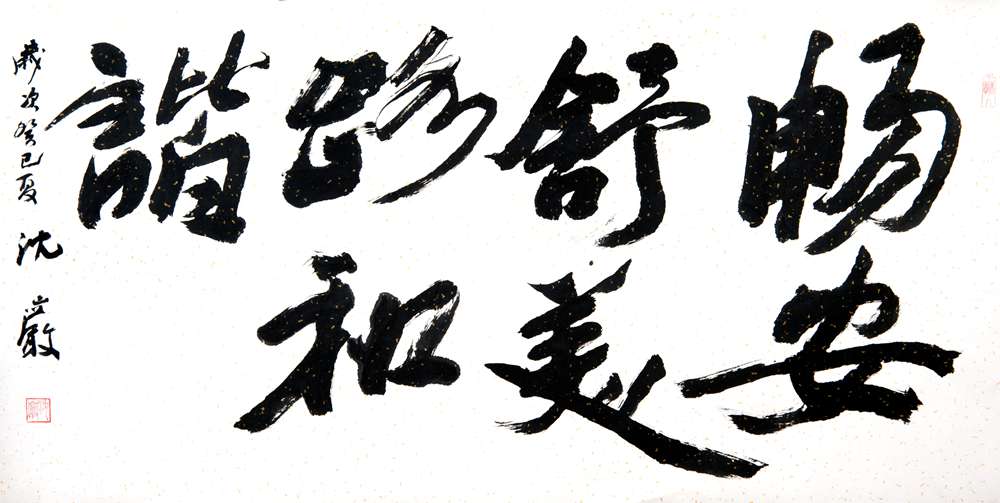 暢安
舒美
路和
諧
歲次癸巳夏 沈巖